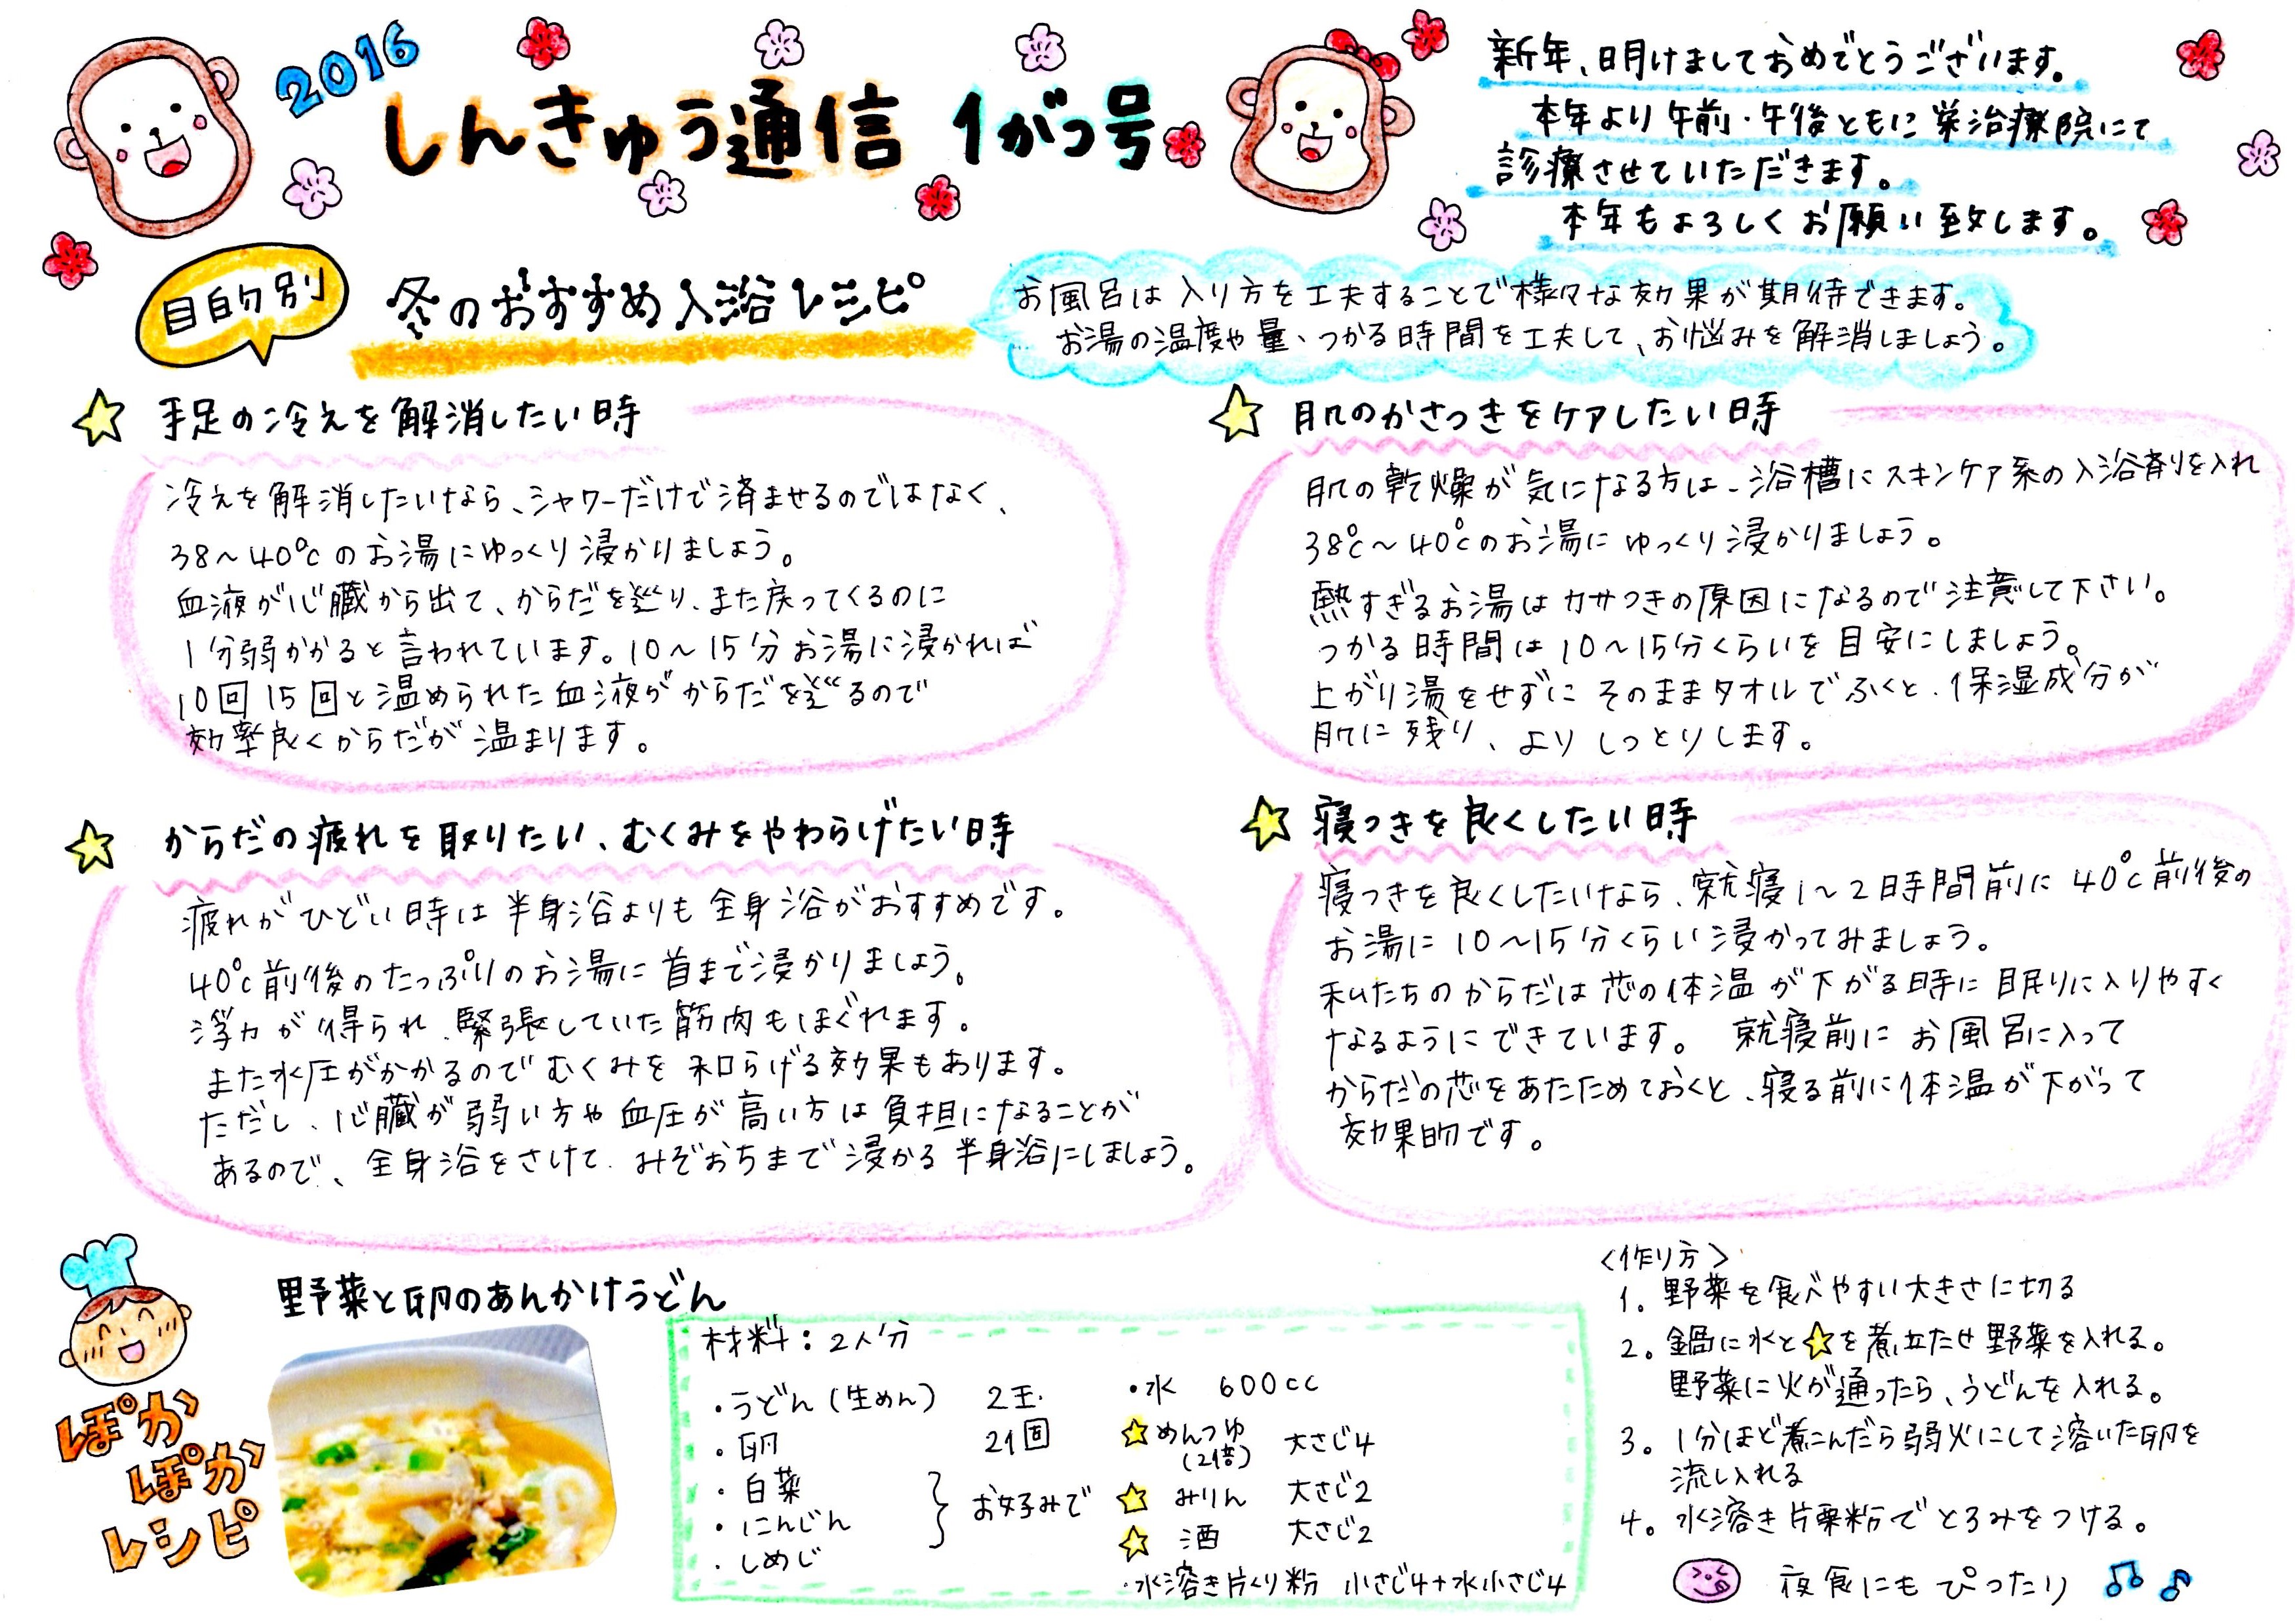 2016
しんきゅう通信 1がつ号
新年、明けましておめでとうございます。
本年より午前・午後ともに栄治療院にて
診療させていただきます。
本年もよろしくお願い致します。
目的別
冬のおすすめ入浴レシピ
お風呂は入り方を工夫することで様々な効果が期待できます。
お湯の温度や量、つかる時間を工夫して、お悩みを解消しましょう。
手足の冷えを解消したい時
冷えを解消したいなら、シャワーだけで済ませるのではなく、
38〜40℃のお湯にゆっくり浸かりましょう。
血液が心臓から出て、からだを巡り、また戻ってくるのに
1分弱かかると言われています。10〜15分お湯に浸かれば
10回15回と温められた血液がからだを巡るので
効率良くからだが温まります。
肌のかさつきをケアしたい時
肌の乾燥が気になる方は、浴槽にスキンケア系の入浴剤を入れ
38℃〜40℃のお湯にゆっくり浸かりましょう。
熱すぎるお湯はカサつきの原因になるので注意して下さい。
つかる時間は10〜15分くらいを目安にしましょう。
上がり湯をせずにそのままタオルでふくと、保湿成分が
肌に残り、よりしっとりします。
からだの疲れを取りたい、むくみをやわらげたい時
疲れがひどい時は半身浴よりも全身浴がおすすめです。
40℃前後のたっぷりのお湯に首まで浸かりましょう。
浮力が得られ、緊張していた筋肉もほぐれます。
また水圧がかかるのでむくみを和らげる効果もあります。
ただし、心臓が弱い方や血圧が高い方は負担になることが
あるので、全身浴をさけて、みぞおちまで浸かる半身浴にしましょう。
寝つきを良くしたい時
寝つきを良くしたいなら、就寝1〜2時間前に40℃前後の
お湯に10〜15分くらい浸かってみましょう。
私たちのからだは芯の体温が下がる時に眠りに入りやすく
なるようにできています。就寝前にお風呂に入って
からだの芯をあたためておくと、寝る前に体温が下がって
効果的です。
ぽか
ぽか
レシピ
野菜と卵のあんかけうどん
材料：2人分
・うどん（生めん） 2玉
・卵 2個
・白菜
・にんじん
・しめじ
お好みで
・水 600cc
☆めんつゆ 大さじ4
（2倍）
☆みりん 大さじ2
☆酒 大さじ2
・水溶き片くり粉 小さじ4+水小さじ4
〈作り方〉
1. 野菜を食べやすい大きさに切る
2. 鍋に水と☆を煮立たせ野菜を入れる。
野菜に火が通ったら、うどんを入れる。
3. 1分ほど煮こんだら弱火にして溶いた卵を
流し入れる
4. 水溶き片栗粉でとろみをつける。
夜食にもぴったり